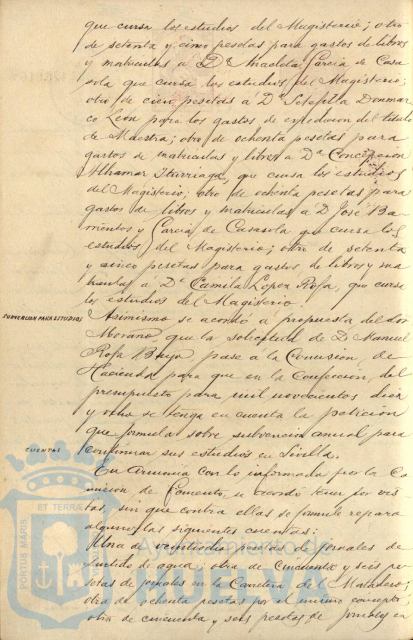 que cursa los estudios del Magisterio; otro
de setenta y cinco pesetas para gastos de libros
y matriculas a Dª García de Casa
sola que cursa los estudios del Magisterio;
otro de cien pesetas a Dª Donmar
co León para los gastos de expedicion del titulo
de Maestra; otro de ochenta pesetas para
gastos de matriculas y libros a Dª Concepción
Alhamar Iturriaga, que cursa los estudios
del Magisterio; otro de ochenta pesetas para
gastos de libros y matriculas a D. José Ba
rrientos y García de Casasola que cursa los
estudios del Magisterio; otro de setenta
y cinco pesetas para gastos de libros y ma
triculas a Dª Camila López Rofa, que cursa
los estudios del Magisterio.
SUBVENCION PARA ESTUDIOS
Asimismo se acordó a propuesta del Sor
Moraño, que la solicitud de D. Manuel
Rofa pase a la Comision de
Hacienda para que en la Confección del
presupuesto para mil novecientos diez
y ocho se tenga en cuenta la petición
que formula sobre subvencion anual para
continuar sus estudios en Sevilla.
CUENTAS
En Armonia con lo informado por la Co
mision de Fomento, se acordó tener por vis
tas, sin que contra ellas se formule reparo
alguno, las siguientes cuentas:
Una de veintiocho pesetas de jornales de
de agua; otra de Cincuenta y seis pe
setas de jornales en la Carretera del Matadero;
otra de ochenta pesetas por el mismo concepto;
otra de cincuenta y seis pesetas de jornales en
PORTUS MARIS ET TERRÆ
Ayuntamiento de
HUELVA